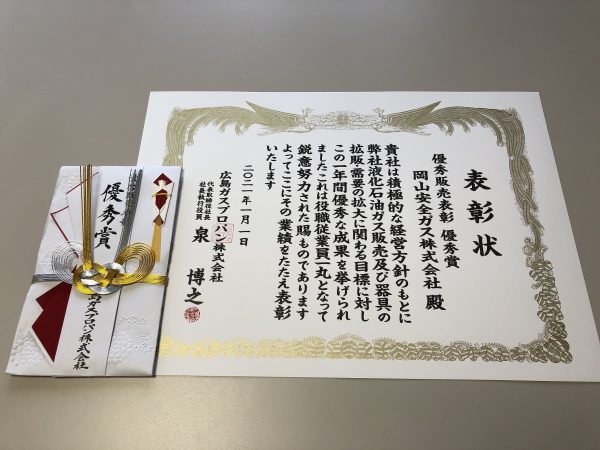 表彰状
優秀販売表彰 優秀賞
岡山安全ガス株式会社 殿
貴社は積極的な経営方針のもとに
弊社液化石油ガス販売及び器具の
拡販・需要の拡大に関わる目標に対し
この一年間優秀な成果を挙げられ
ましたこれは役職従業員一丸となって
鋭意努力された賜ものであります
よってここにその業績をたたえ表彰
いたします
二〇二一年一月一日
広島ガスプロパン株式会社
代表取締役社長
社長執行役員
泉 博之
優秀賞
広島ガスプロパン株式会社